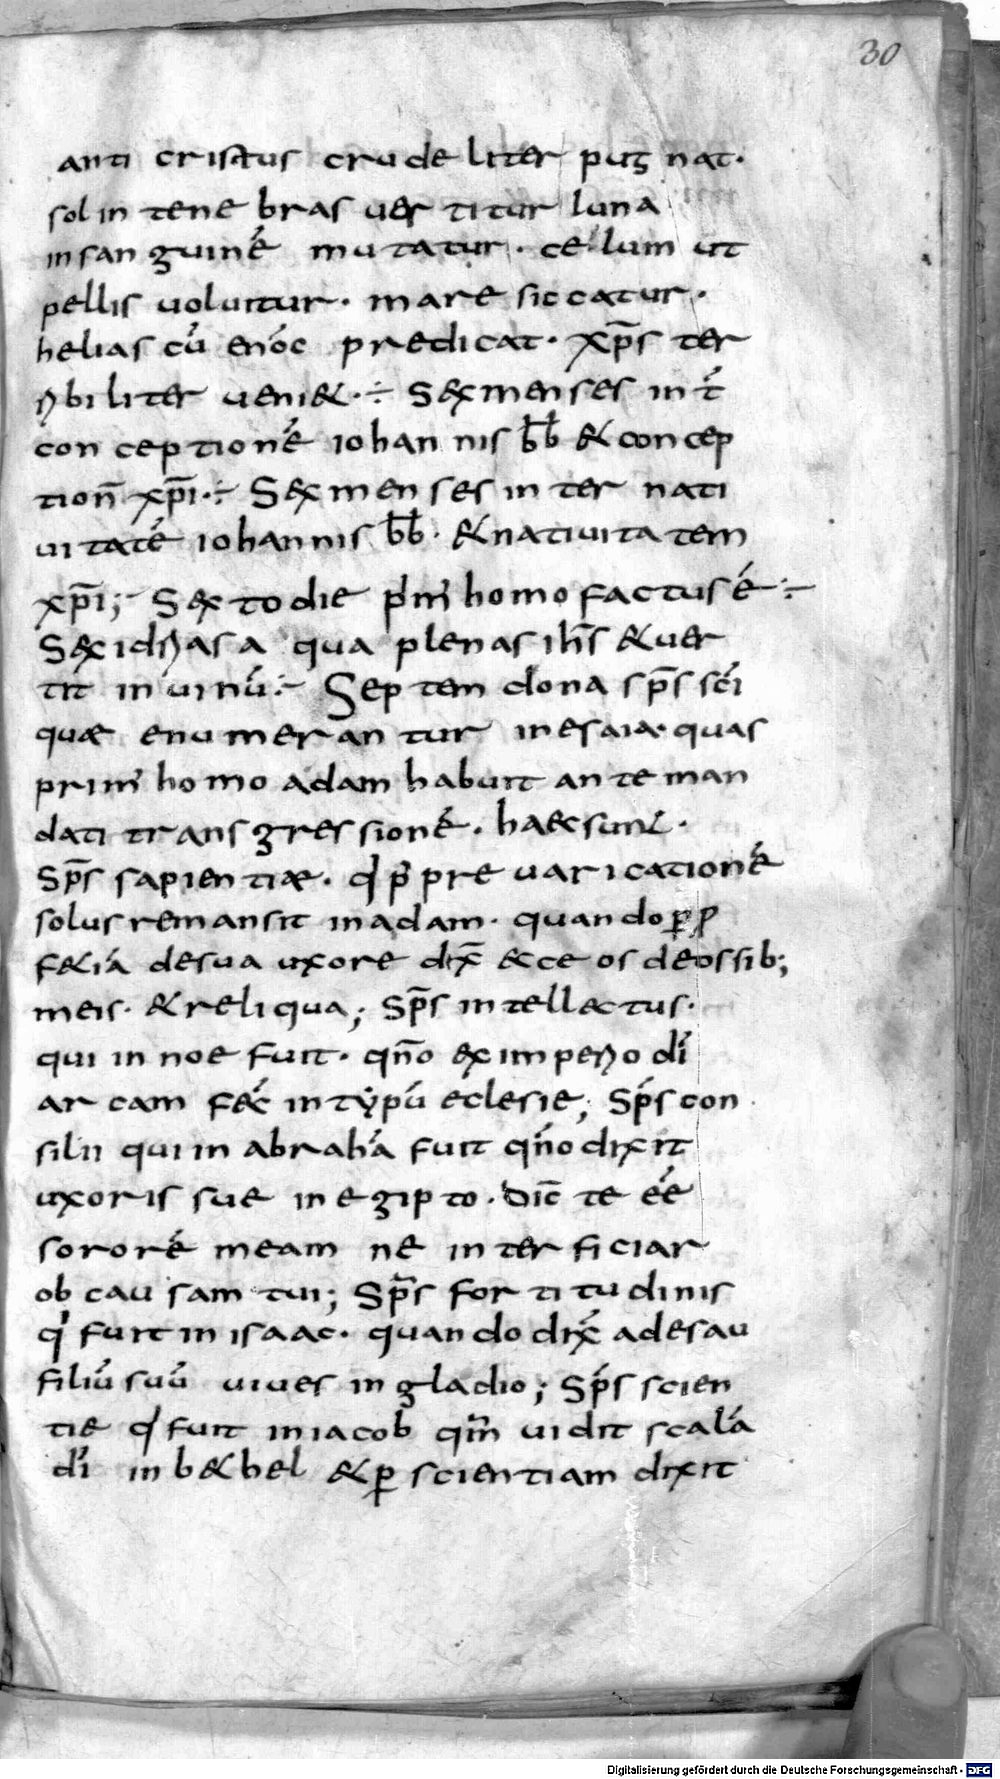 30
anti cristus crudeliter pugnat.
sol in tenebras uertitur luna
in sanguinē mutatur. celum ut
pellis uoluitur. mare siccatur.
helias cū enoc predicat. xp̄s ter
ribiliter ueni&. ÷ Sex menses int̄
conceptionē iohannis bb̄ & concep
tion̄ xp̄i. ÷ Sex menses inter nati
uitatē iohannis bb̄. & natiuitatem
xp̄i; Sexto die prim' homo factus ē ÷
Sex idrias aqua plenas ih̄s & uer
tit in uinū. ÷ Septem dona sp̄s sc̄i
quæ enumerantur in esaia. quas
prim' homo adam habuit ante man
dati transgressionē. haec sunt.
Sp̄s sapientiæ. q' p' preuaricationē
solus remansit in adam. quando ꝓp
f&iā de sua uxore dix̄ ecce os de ossib;
meis. & reliqua; Sp̄s intellectus.
qui in noe fuit. qn̄o ex imperio dī
arcam fec̄ in typū eclesie; Sp̄s con
silii qui in abrahā fuit qn̄o dixit
uxoris sue in egipto. dic̄ te ēe
sororē meam ne interficiar
ob causam tui; Sp̄s fortitudinis
q' fuit in isaac. quando dix̄ ad esau
filiū suū uiues in gladio; Sp̄s scien
tie q' fuit in iacob qn̄ uidit scalā
dī in b&hel & ꝑ scientiam dixit
Digitalisierung gefördert durch die Deutsche Forschungsgemeinschaft - DFG